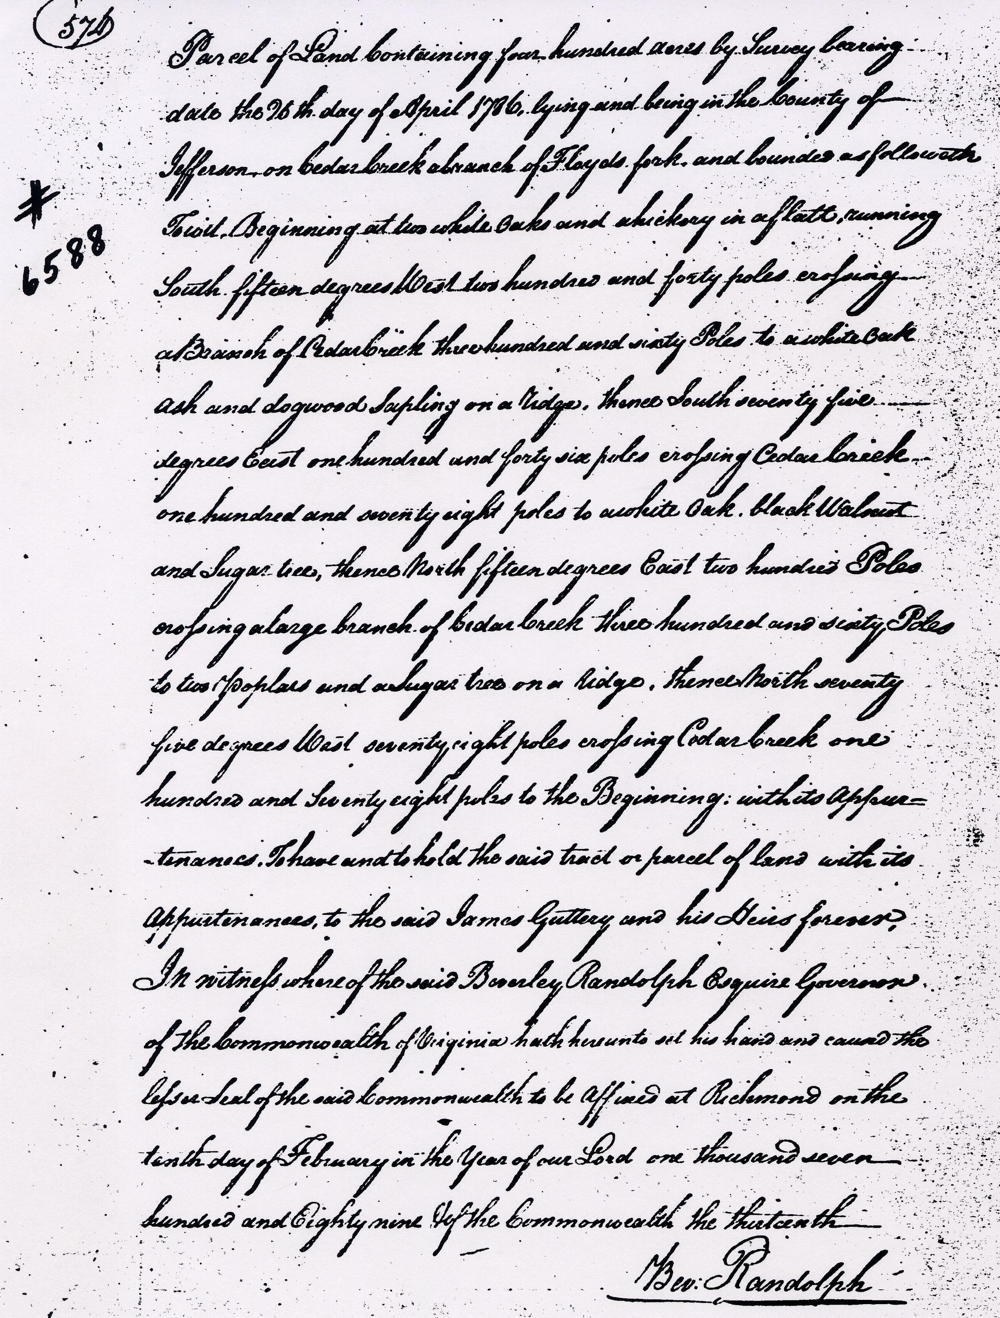 574
Parcel of Land Containing four hundred acres by Survey bearing
date the 26th day of April 1786, lying and being in the County of
Jefferson, on Cedar Creek a branch of Floyds fork, and bounded as followeth
# 
Towit, Beginning at two white Oaks and a hickory in a flatt, running
6588
South fifteen degrees West two hundred and forty poles crossing
a Branch of Cedar Creek three hundred and sixty Poles to a white Oak
Ash and dogwood Sapling on a ridge, thence South seventy five
degrees East one hundred and forty six poles crossing Cedar Creek
one hundred and seventy eight poles to a white Oak, black Walnut
and Sugar tree, thence North fifteen degrees East two hundred Poles
crossing a large branch of Cedar Creek three hundred and sixty Poles
to two Poplars and a Sugar tree on a ridge, thence North seventy
five degrees West seventy eight poles crossing Cedar Creek one
hundred and Seventy eight poles to the Beginning: with its Appur=
-tenances. To have and to hold the said tract or parcel of land with its
Appurtenances, to the said James Guttery and his Heirs forever,
In witness whereof the said Beverley Randolph Esquire Governor
of the Commonwealth of Virginia hath hereunto set his hand and caused the
lesser Seal of the said Commonwealth to be Affixed at Richmond on the
tenth day of February in the Year of our Lord one thousand seven
hundred and Eighty nine & of the Commonwealth the thirteenth
Bev: Randolph